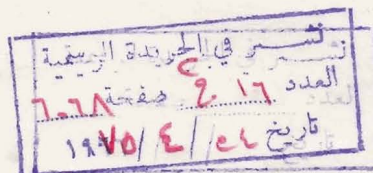 نشر في الجريدة الرسمية
العدد ١٦ صفحة ٦٠٦٨
تاريخ ٢٤/٤/١٩٧٥